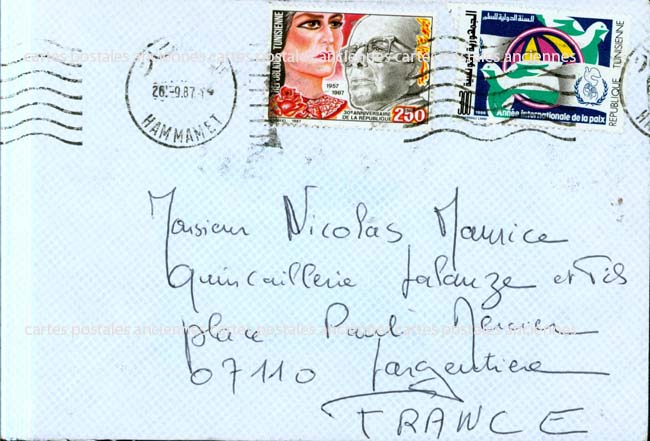 cartes postales anciennes cartes postales anciennes cartes postales anciennes
26.-9.87
HAMMAMET
REPUBLIQUE TUNISIENNE
1957
1987
30e ANNIVERSAIRE
DE LA RÉPUBLIQUE
250
1987
الجمهورية التونسية
السنة الدولية للسلم
REPUBLIQUE TUNISIENNE
1986
Année internationale de la paix
Monsieur Nicolas Maurice
Quincaillerie Lalauze et Fils
cartes postales anciennes cartes postales anciennes cartes postales anciennes
place Paul
07110 Largentière
FRANCE